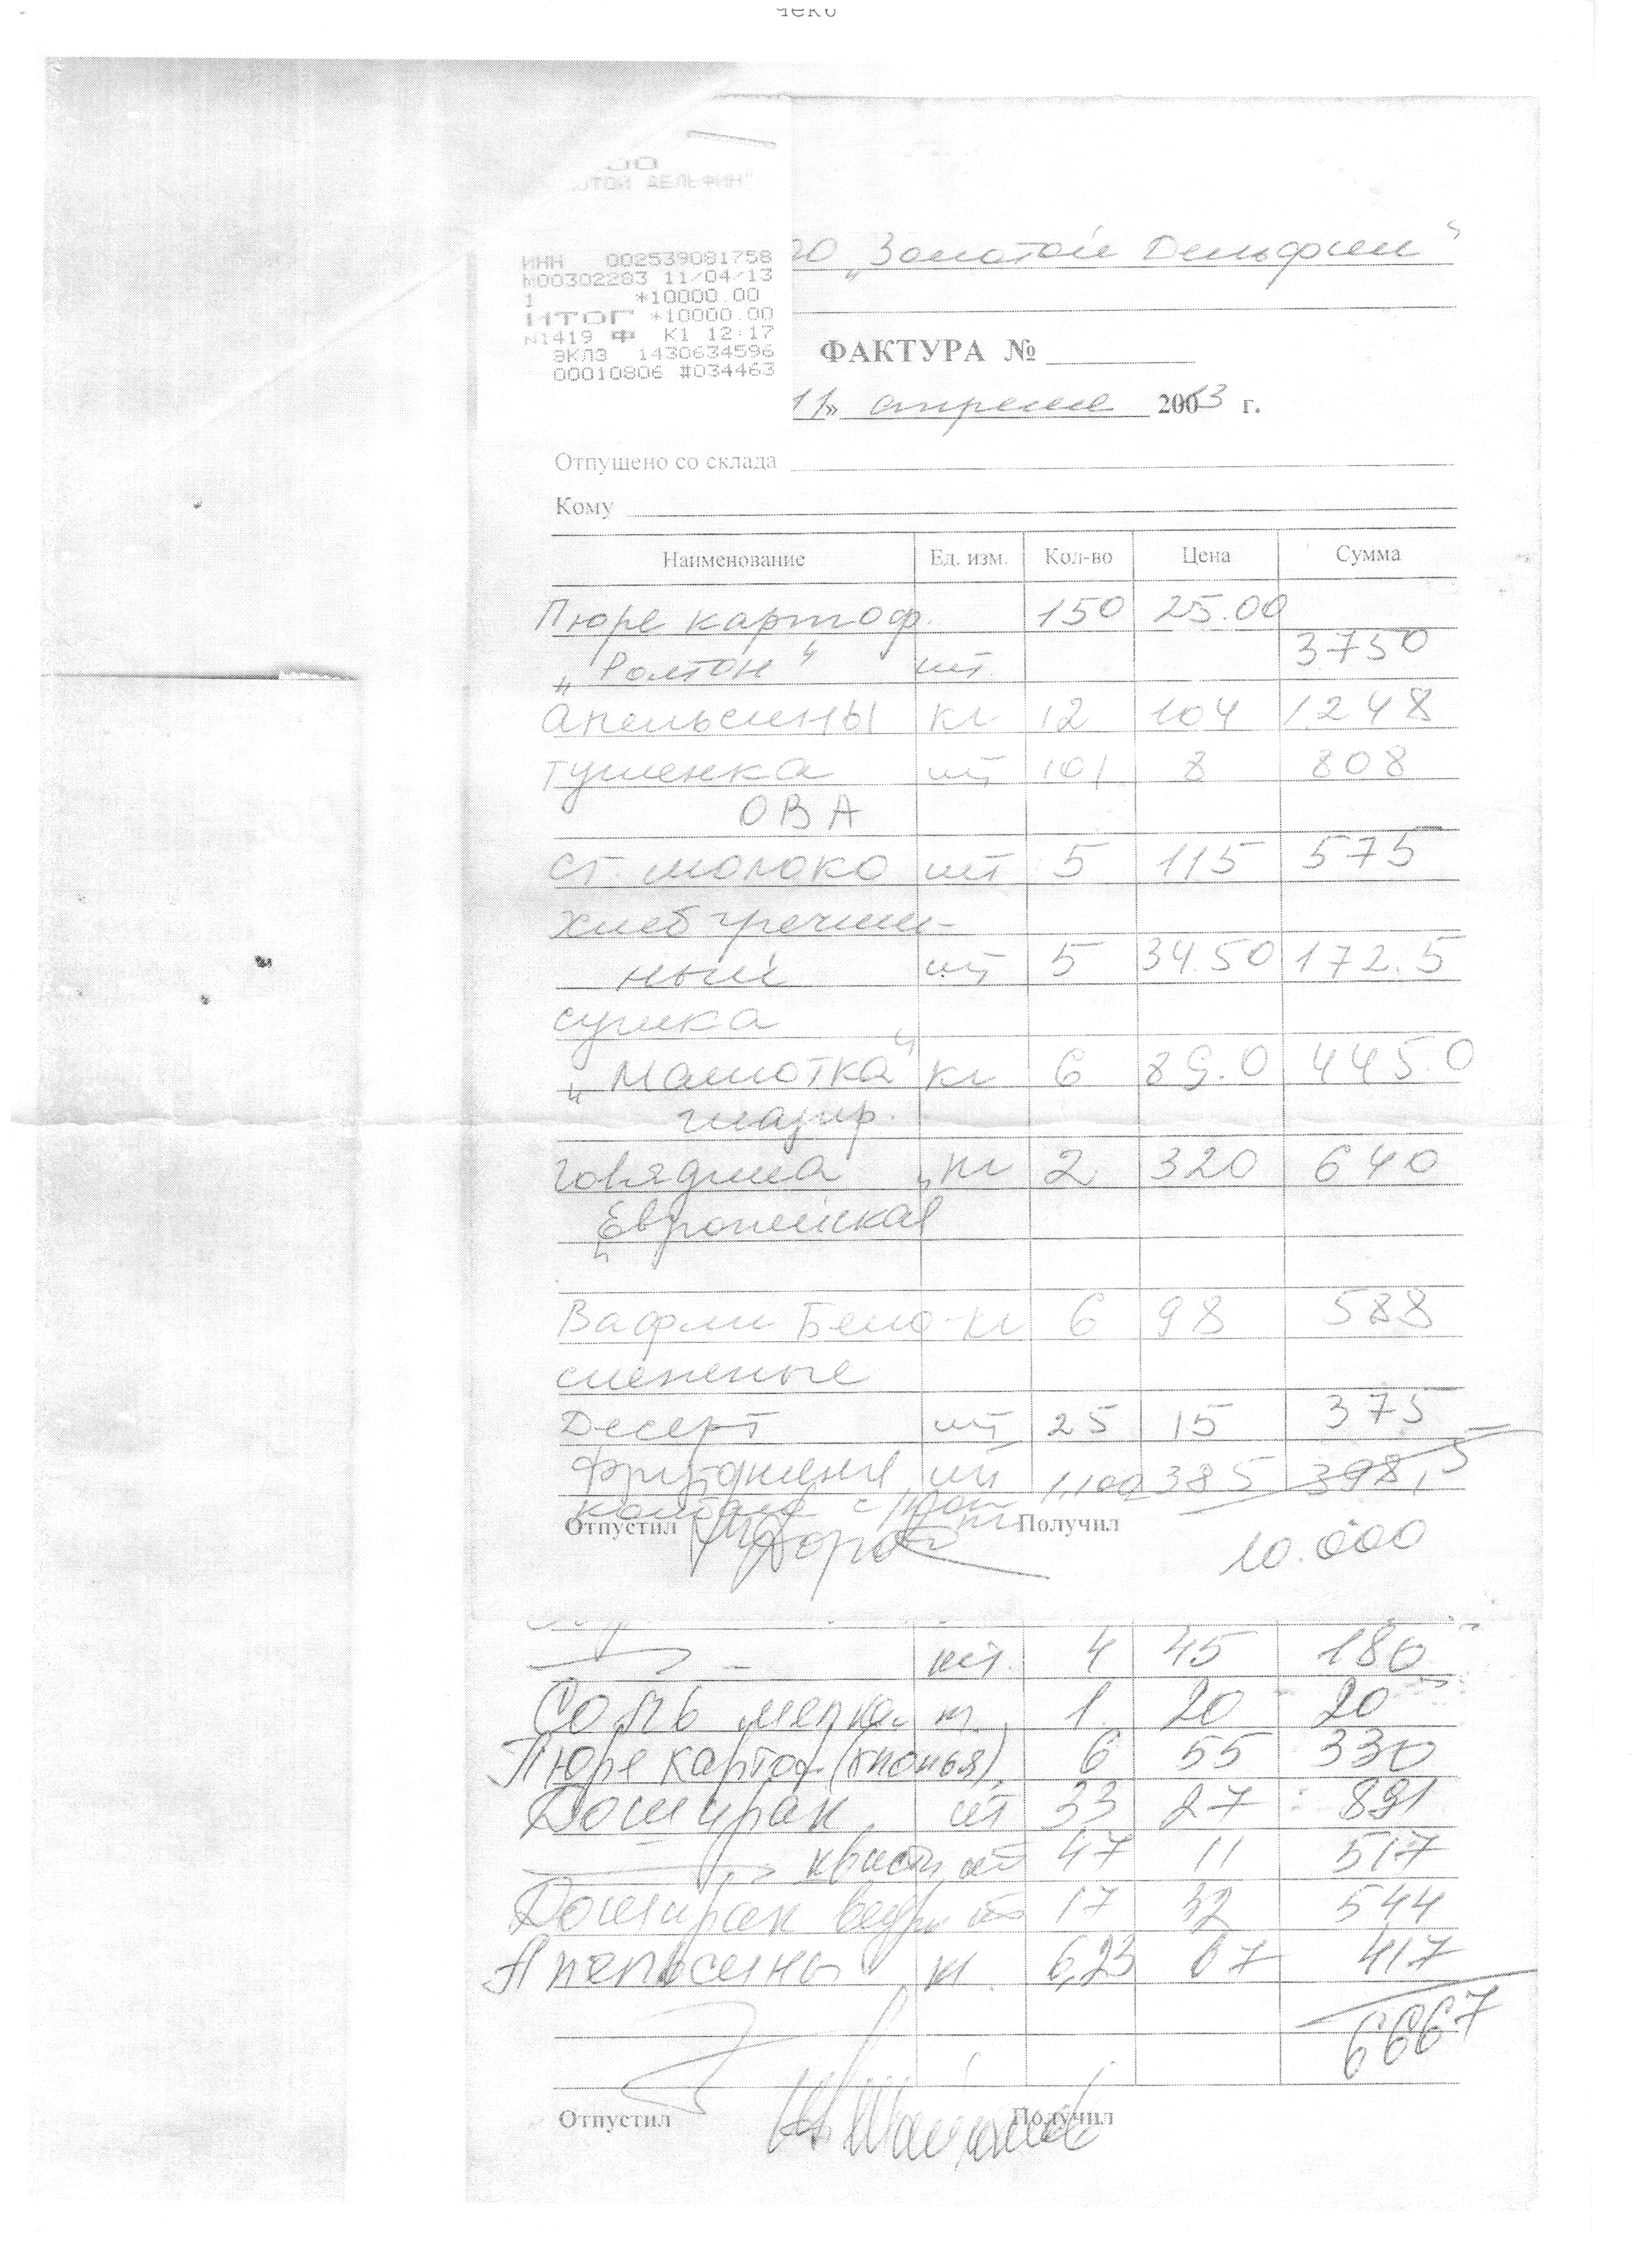 ОТОЙ ДЕЛЬФИН"
ИНН 002539081758
М00302283 11/04/13
1 *10000.00
ИТОГ *10000.00
N1419 Ф К1 12:17
ЭКЛЗ 1430634596
00010806 #034463
„Золотой Дельфин“
ФАКТУРА №
11» апреля 20013 г.
Отпущено со склада
Кому
Наименование Ед. изм. Кол-во Цена Сумма
Пюре картоф. 150 25.00
„Ролтон“ шт. 3750
Апельсины кг 12 104 1248
Тушенка шт 101 8 808
ОВА
сг. молоко шт 5 115 575
Хлеб гречиш-
ный шт 5 34.50 172.5
сушка
„Малютка“ кг 6 89.0 445.0
глазир.
Говядина кг 2 320 640
„Европейская
Вафли Бело- кг 6 98 588
снежные
Десерт шт 25 15 375
1,100 385 398,5
Отпустил Получил
10.000
шт. 4 45 180
Соль мелка 1 20 20
Пюре картоф (хлопья) 6 55 330
Доширак шт 33 27 891
квисти шт 47 11 517
Доширак ведро шт 17 32 544
Апельсины кг 6,23 67 417
6667
Отпустил Получил